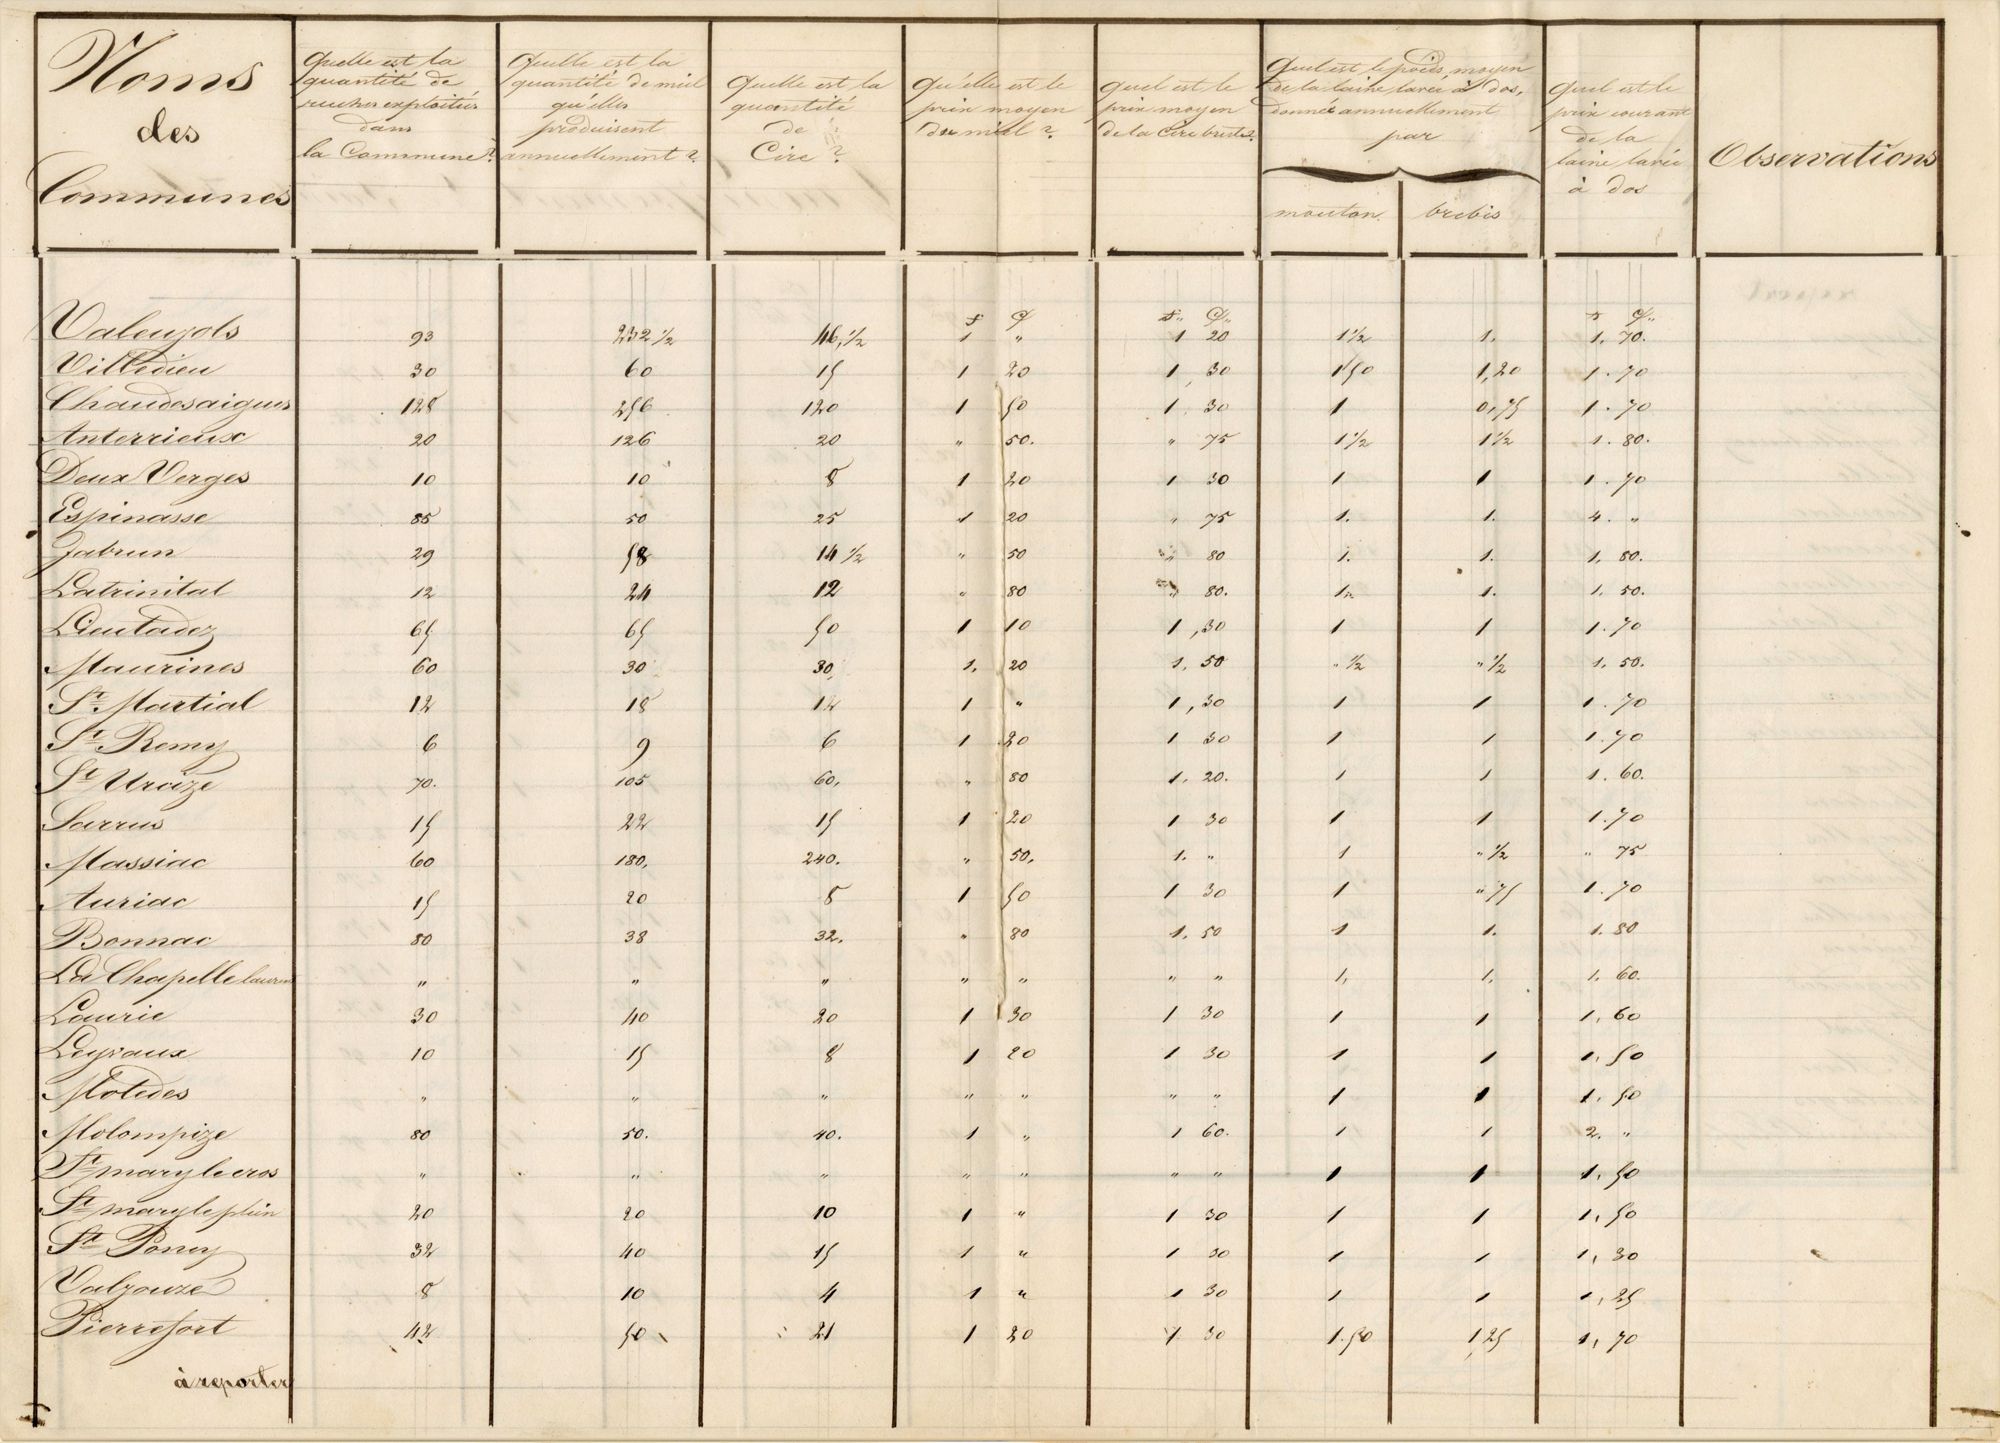 Noms
des
Communes
Quelle est la
quantité de
ruches exploitées
dans
la Commune?
Quelle est la
quantité de miel
qu'elles
produisent
annuellement?
Quelle est la
quantité
de
Cire?
Qu'elle est le
prix moyen
du miel?
quel est le
prix moyen
de la Cire brute?
Quel est le poids moyen
de la laine lavée à dos,
donnée annuellement
par
mouton
brebis
Quel est le
prix courant
de la
laine lavée
à dos
Observations
f ȼ f ȼ f ȼ
Valeujols 93 232 1/2 46,1/2 1 " 1 20 1 1/2 1. 1. 70.
Villedieu 30 60 15 1 20 1, 30 1 50 1,20 1. 70
Chaudesaigues 128 256 120 1 50 1. 30 1 0,75 1. 70
Anterrieux 20 126 20 " 50. " 75 1 1/2 1 1/2 1. 80.
Deux Verges 10 10 8 1 20 1 30 1 1 1. 70
Espinasse 85 50 25 1 20 " 75 1. 1. 4. "
Jabrun 29 58 14 1/2 " 50 " 80 1. 1. 1. 80.
Latrinitat 12 24 12 " 80 " 80. 1. 1. 1. 50.
Lieutadez 65 65 50 1 10 1,30 1 1 1. 70
Maurines 60 30 30, 1. 20 1. 50 " 1/2 " 1/2 1. 50.
St. Martial 12 18 12 1 " 1,30 1 1 1. 70
St Remy 6 9 6 1 20 1 30 1 1 1. 70
St Urcize 70. 105 60, " 80 1. 20. 1 1 1. 60.
Sarrus 15 22 15 1 20 1 30 1 1 1. 70
Massiac 60 180, 240. " 50. 1. " 1 " 1/2 " 75
Auriac 15 20 8 1 50 1 30 1 " 75 1. 70
Bonnac 80 38 32. " 80 1. 50 1 1. 1. 80
La Chapelle laurent " " " " " " " 1, 1, 1. 60.
Laurie 30 40 20 1 30 1 30 1 1 1, 60
Leyvaux 10 15 8 1 20 1 30 1 1 1, 50
Molèdes " " " " " " " 1 1 1, 50
Molompize 80 50. 40. 1 " 1 60. 1 1 2. "
St mary le cros " " " " " " " 1 1 1, 50
St mary le plein 20 20 10 1 " 1 30 1 1 1, 50
St Poncy 32 40 15 1 " 1 30 1 1 1, 30
Valjouze 8 10 4 1 " 1 30 1 1 1, 25
Pierrefort 42 50 21 1 20 1 30 1.50 1 25 1, 70
à reporter